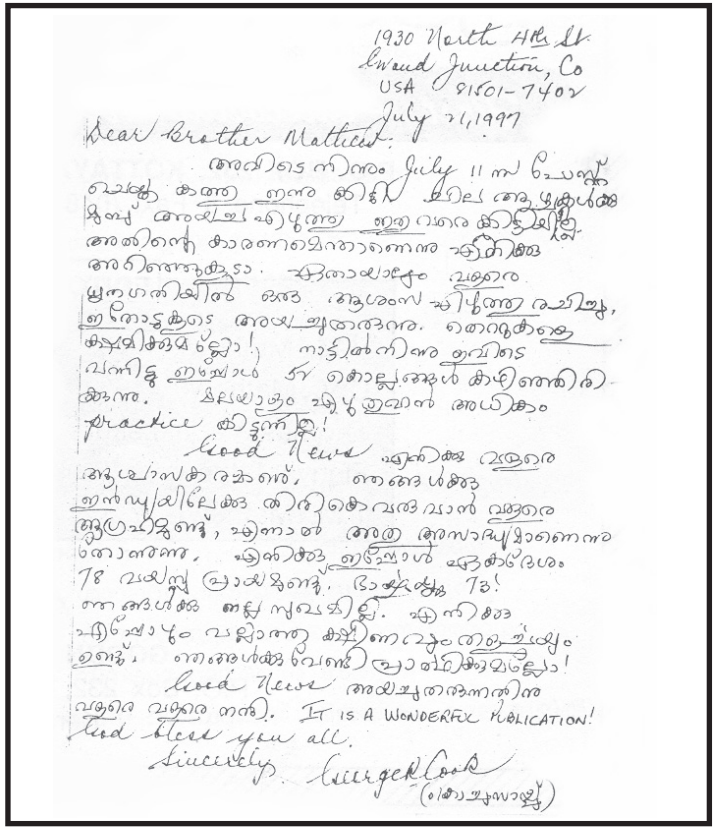 1930 North 4th St.
Grand Junction, Co
USA 81501-7402
July 21, 1997
Dear Brother Mathew:
അവിടെ നിന്നും July 11 ന് പോസ്റ്റ്
ചെയ്ത കത്തു ഇന്നു കിട്ടി. ചില ആഴ്ചകൾക്കു
മുമ്പ് അയച്ച എഴുത്തു ഇതുവരെ കിട്ടിയില്ല.
അതിന്റെ കാരണമെന്താണെന്നു എനിക്കു
അറിഞ്ഞുകൂടാ. ഏതായാലും വളരെ
ധൃതഗതിയിൽ ഒരു ആശംസ എഴുത്തു രചിച്ചു,
ഇതോടുകൂടെ അയച്ചുതരുന്നു. തെറ്റുകളെ
ക്ഷമിക്കുമല്ലോ! നാട്ടിൽനിന്നു ഇവിടെ
വന്നിട്ടു ഇപ്പോൾ കൊല്ലങ്ങൾ കഴിഞ്ഞിരി
ക്കുന്നു. മലയാളം എഴുതുവാൻ അധികം
practice കിട്ടുന്നില്ല!
Good News എനിക്കു വളരെ
ആശ്വാസകരമാണ്. ഞങ്ങൾക്കു
ഇൻഡ്യയിലേക്കു തിരികെവരുവാൻ വളരെ
ആഗ്രഹമുണ്ടു്, എന്നാൽ അതു അസാദ്ധ്യമാണെന്നു
തോന്നുന്നു. എനിക്കു ഇപ്പോൾ ഏകദേശം
78 വയസ്സു പ്രായമുണ്ടു്. ഭാര്യയ്ക്കു 73!
ഞങ്ങൾക്കു നല്ല സുഖമില്ല. എനിക്കു
എപ്പോഴും വല്ലാത്ത ക്ഷീണവും തളർച്ചയും
ഉണ്ടു്. ഞങ്ങൾക്കുവേണ്ടി പ്രാർത്ഥിക്കുമല്ലോ!
Good News അയച്ചുതരുന്നതിനു
വളരെ വളരെ നന്ദി. IT IS A WONDERFUL PUBLICATION!
God bless you all.
Sincerely, George Cook
(കൊച്ചുസായ്പ്പ്)